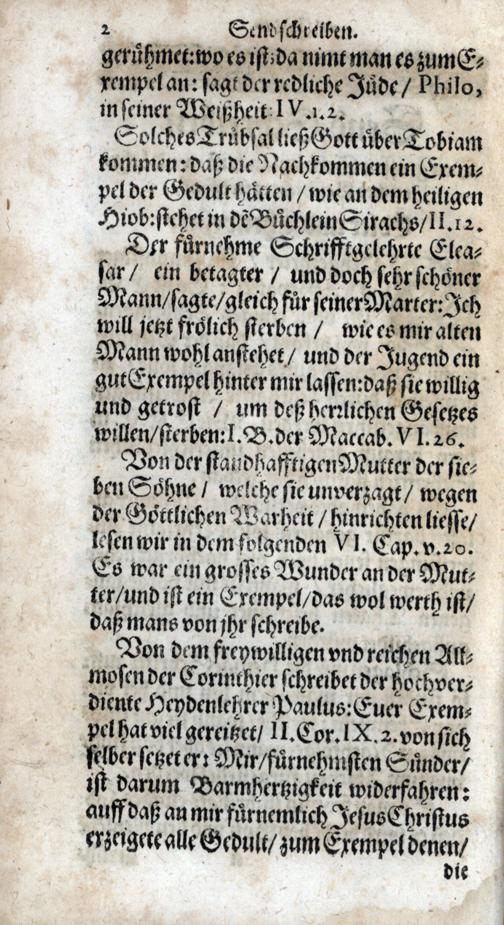 2 Sendschreiben.
gerühmet: wo es ist: da nimt man es zum E-
xempel an: sagt der redliche Jüde / Philo,
in seiner Weißheit IV.1.2.
Solches Trübsal ließ Gott über Tobiam
kommen: daß die Nachkommen ein Exem-
pel der Gedult hätten / wie an dem heiligen
Hiob: stehet in dē Büchlein Sirachs / II.12.
Der fürnehme Schrifftgelehrte Elea-
sar / ein betagter / und doch sehr schöner
Mann / sagte / gleich für seiner Marter: Ich
will jetzt frölich sterben / wie es mir alten
Mann wohl anstehet / und der Jugend ein
gut Exempel hinter mir lassen: daß sie willig
und getrost / um deß herrlichen Gesetzes
willen / sterben: I. B. der Maccab. VI.26.
Von der standhafftigen Mutter der sie-
ben Söhne / welche sie unverzagt / wegen
der Göttlichen Warheit / hinrichten liesse /
lesen wir in dem folgenden VI. Cap. v.20.
Es war ein grosses Wunder an der Mut-
ter / und ist ein Exempel / das wol werth ist /
daß mans von jhr schreibe.
Von dem freywilligen vnd reichen All-
mosen der Corinthier schreibet der hochver-
diente Heydenlehrer Paulus: Euer Exem-
pel hat viel gereitzet / II. Cor. IX.2. von sich
selber setzet er: Mir / fürnehmsten Sünder /
ist darum Barmhertzigkeit widerfahren:
auff daß an mir fürnemlich Jesus Christus
erzeigete alle Gedult / zum Exempel denen /
die